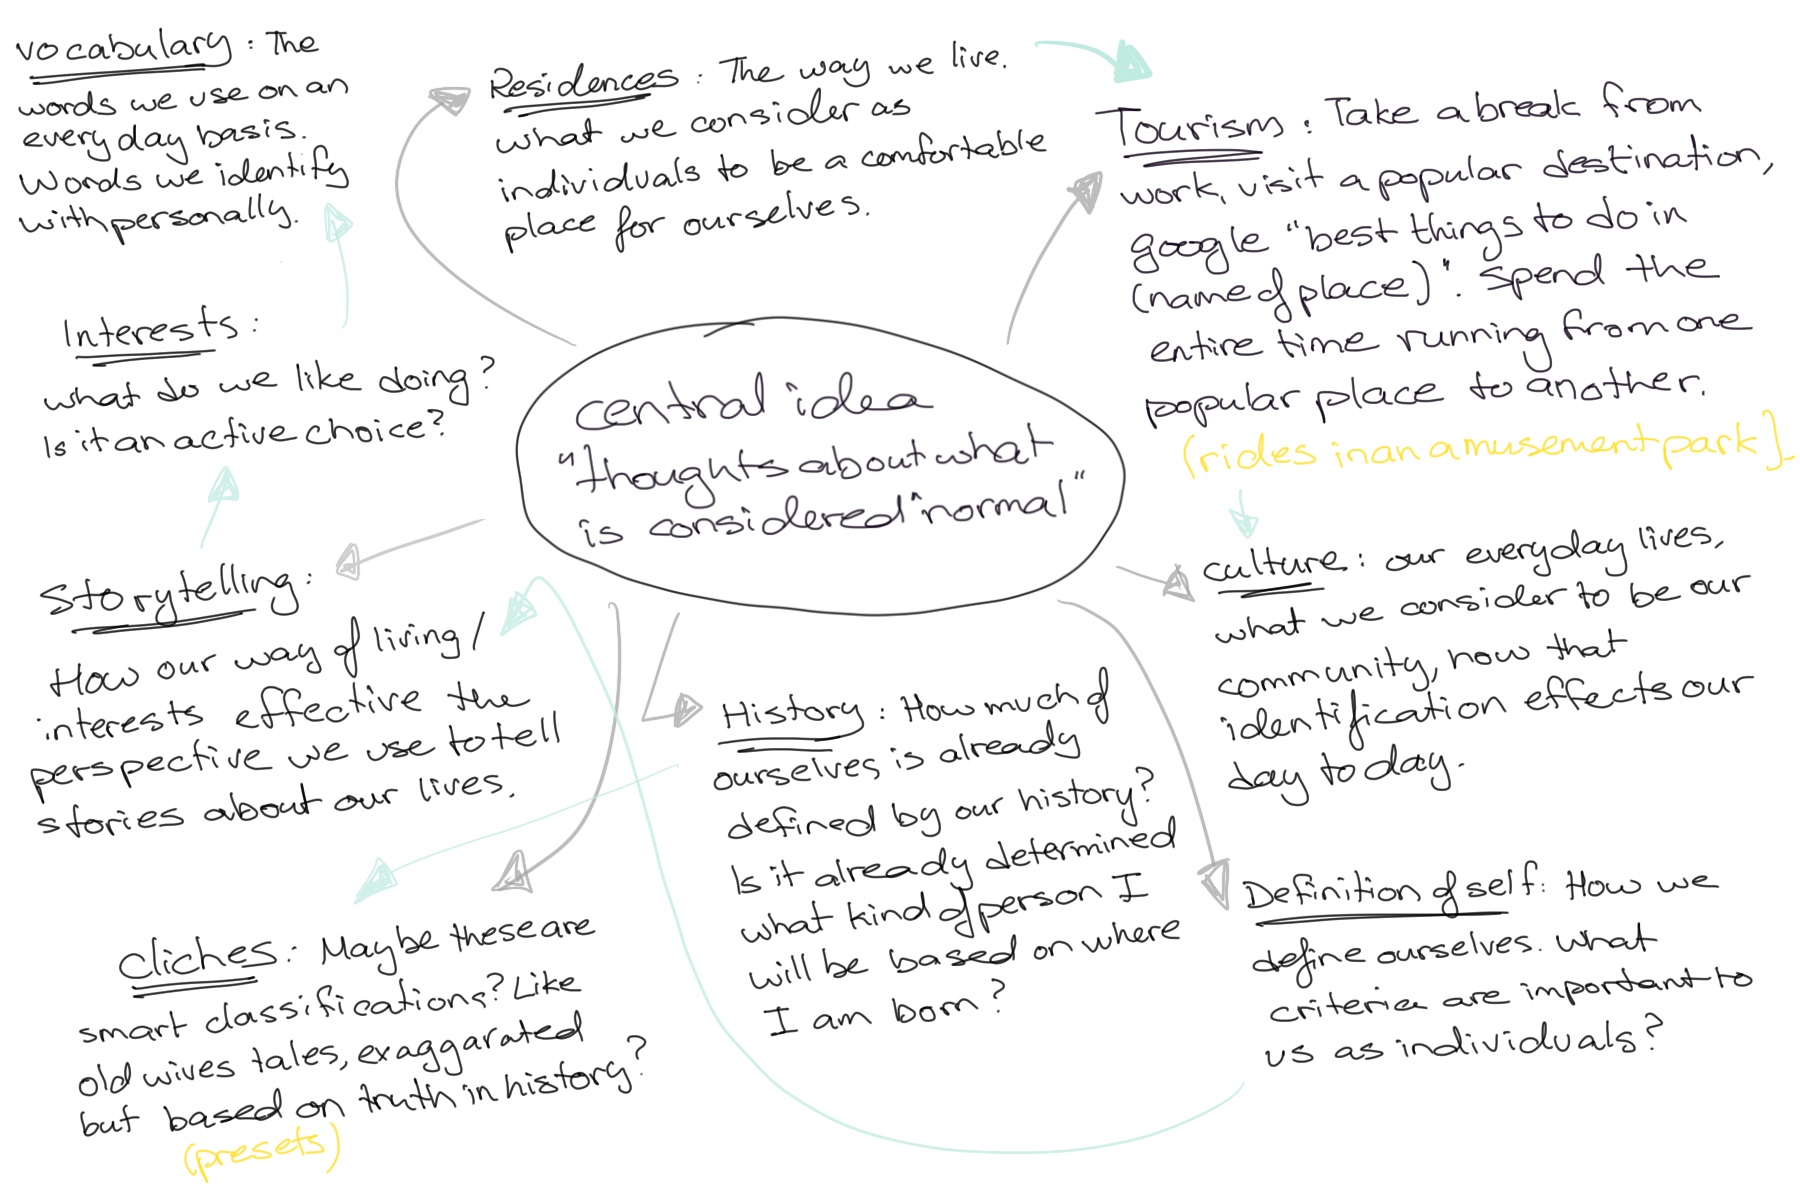 vocabulary: The
words we use on an
everyday basis.
Words we identify
with personally.
Residences: The way we live.
what we consider as
individuals to be a comfortable
place for ourselves.
Tourism: Take a break from
work, visit a popular destination,
google "best things to do in
(name of place)". Spend the
entire time running from one
popular place to another.
(rides in an amusement park)
Interests:
what do we like doing?
Is it an active choice?
central idea
"thoughts about what
is considered "normal"
Storytelling:
How our way of living/
interests effective the
perspective we use to tell
stories about our lives.
culture: our everyday lives,
what we consider to be our
community, how that
identification effects our
day to day.
History: How much of
ourselves is already
defined by our history?
Is it already determined
what kind of person I
will be based on where
I am born?
Definition of self: How we
define ourselves. what
criteria are important to
us as individuals?
cliches: Maybe these are
smart classifications? Like
old wives tales, exaggarated
but based on truth in history?
(presets)